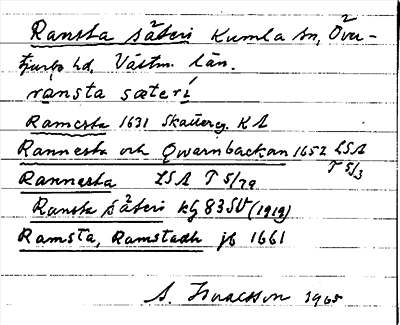 Ransta säteri Kumla sn, Över-
tjurbo hd, Västm. län.
ransta sæterí
Ramersta 1631 Skatterg. KA
Rannesta och Qwarnbackan 1652 LSA
T 5/3
Rannesta LSA T 5/79
Ransta säteri kg 83 SV (1919)
Ramsta, Ramstadh jb 1661
S. 1965